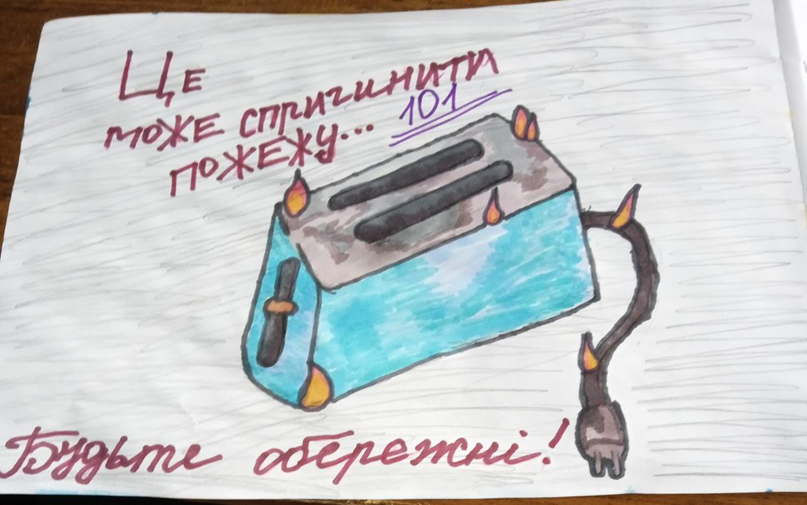 Це
може спричинити
пожежу...
101
Будьте обережні!